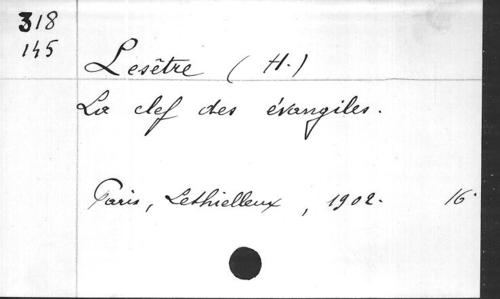 318
145
Lesêtre (H.)
La clef des évangiles.
Paris, Lethielleux, 1902. 16°